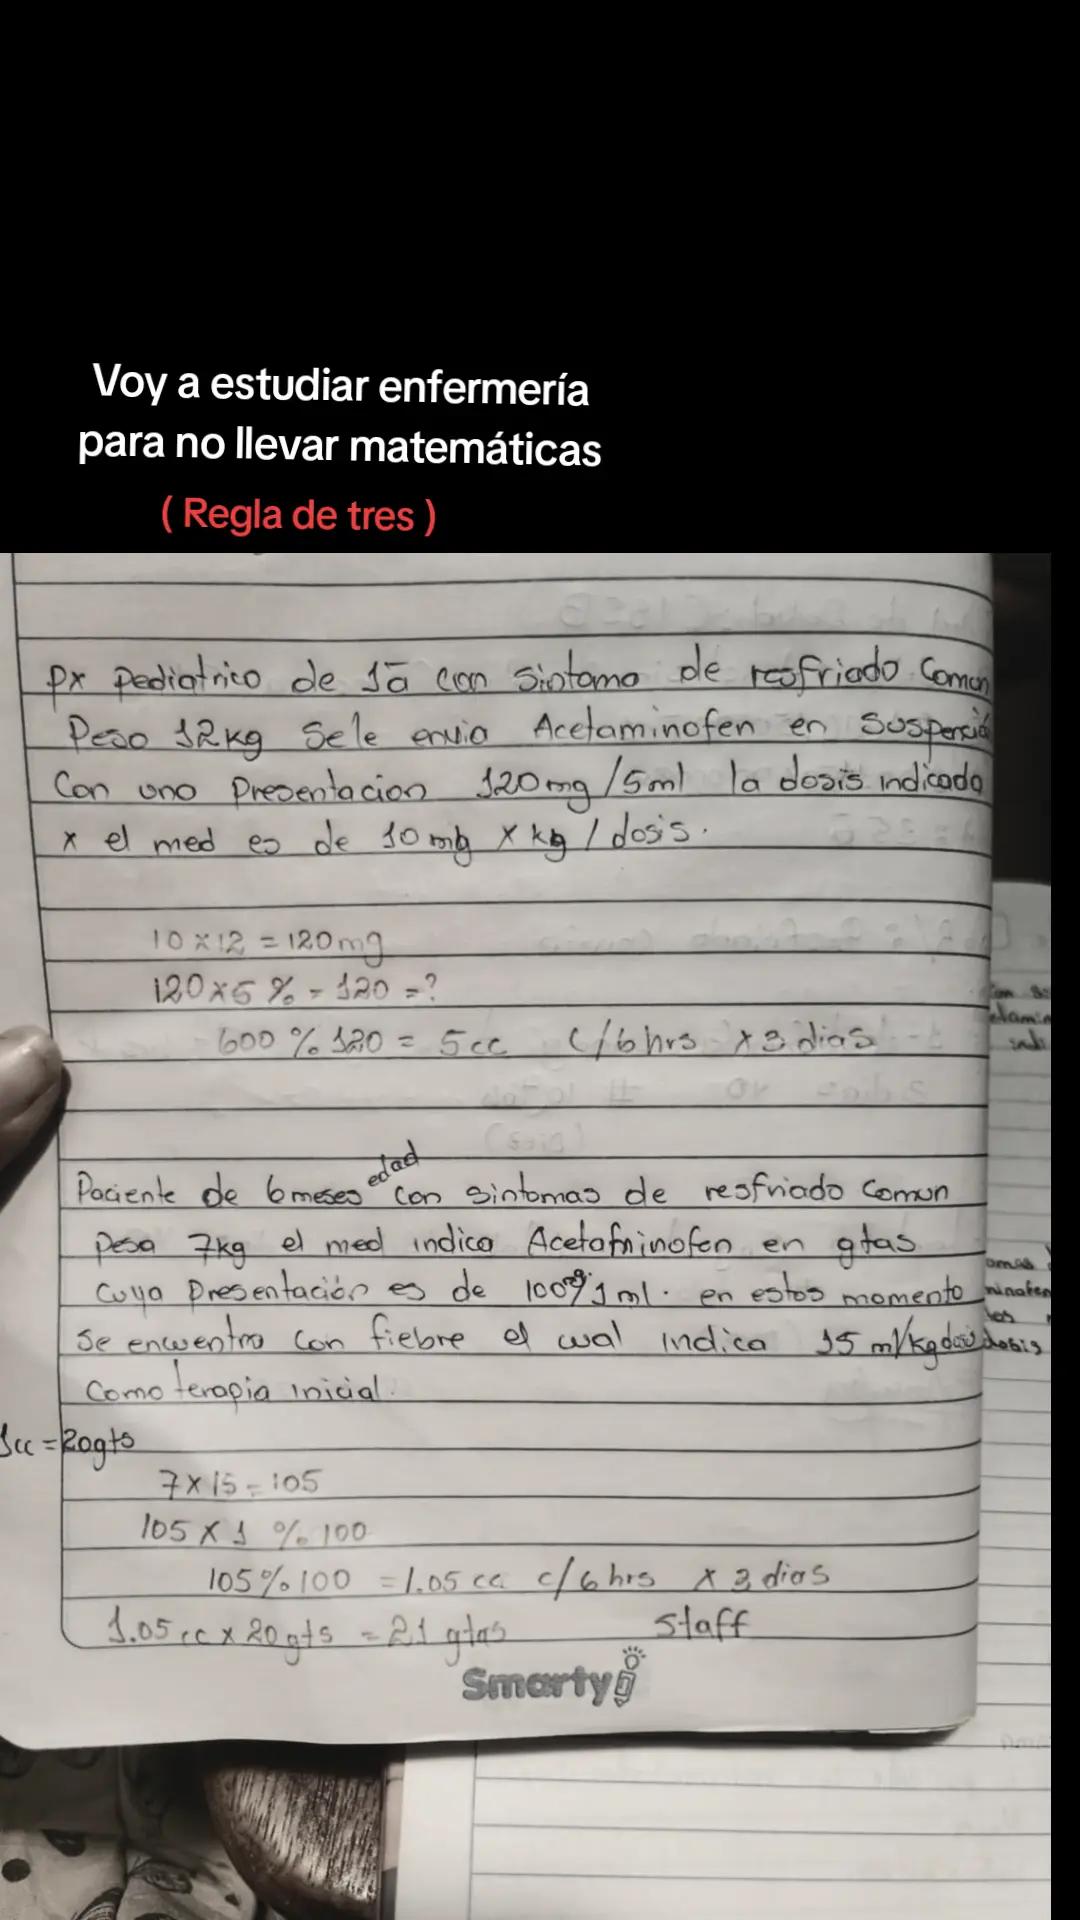 Voy a estudiar enfermería
para no llevar matemáticas
( Regla de tres )
Px Pediatrico de 1ā con Sintoma de resfriado Comun
Peso 12kg Se le envia Acetaminofen en Suspenció
Con una Presentacion 120mg/5ml la dosis indicada
x el med es de 10mg x kg / dosis.
10 x 12 = 120mg
120 x 5 % - 120 = ?
600 % 120 = 5cc c/6hrs x 3 dias
Paciente de 6 meses edad con sintomas de resfriado Comun
Pesa 7kg el med indica Acetaminofen en gtas
cuya Presentación es de 100mg/1ml. en estos momento
se encuentra con fiebre el cual indica 15 m/kg dosis
Como terapia inicial.
1cc = 20gts
7 x 15 = 105
105 x 1 % 100
105 % 100 = 1.05 cc c/6hrs x 3 dias
1.05 cc x 20gts = 21 gtas Staff
Smarty